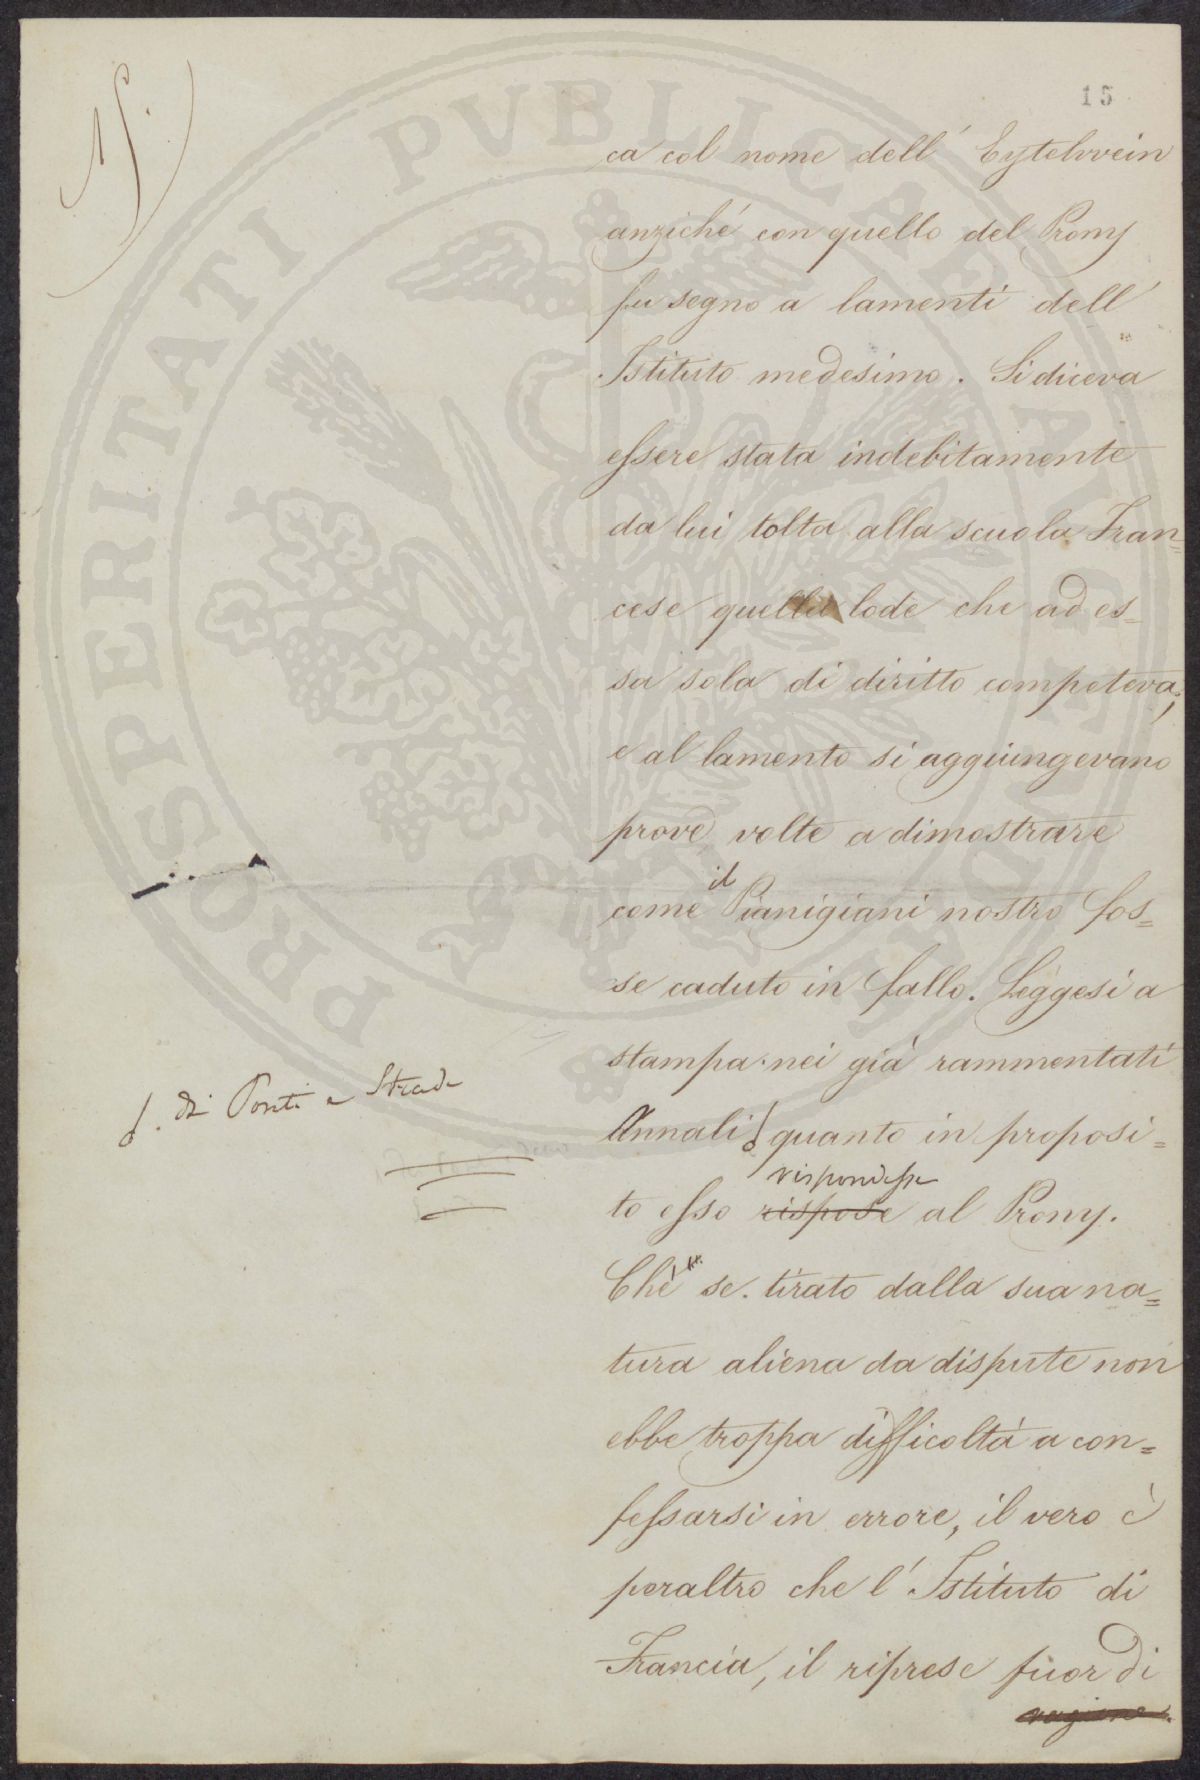 15.
15
ca col nome dell' Eytelwein
anziché con quello del Prony
fu segno a lamenti dell'
Istituto medesimo. Si diceva
essere stata indebitamente
da lui tolta alla scuola Fran=
cese quella lode che ad es=
sa sola di diritto competeva;
e al lamento si aggiungevano
prove volte a dimostrare
il
come Pianigiani nostro fos=
se caduto in fallo. Leggesi a
stampa nei già rammentati
di Ponti e Strade
Annali quanto in proposi=
rispondesse
to esso rispose al Prony.
Ché se tirato dalla sua na=
tura aliena da dispute non
ebbe troppa difficoltà a con=
fessarsi in errore, il vero è
peraltro che l'Istituto di
Francia, il riprese fuor di
ragione.
PROSPERITATI PVBLICAE AVGENDAE